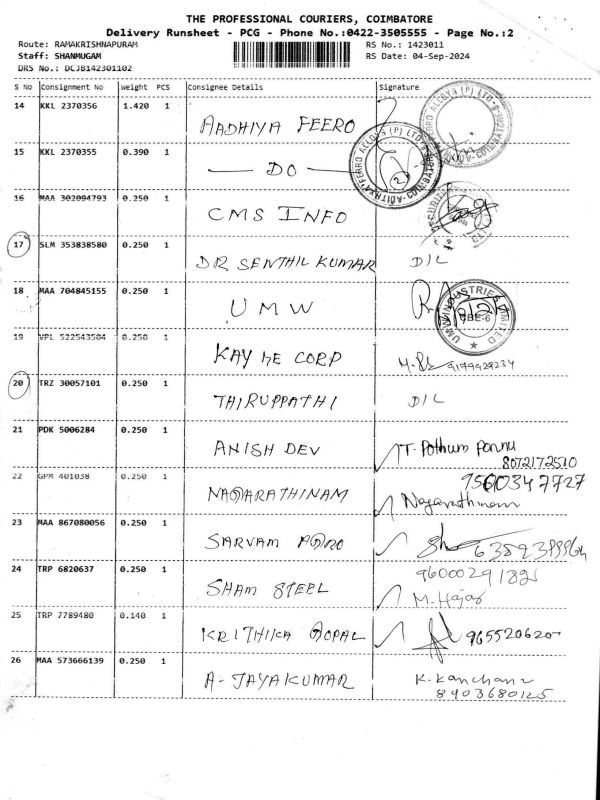 THE PROFESSIONAL COURIERS, COIMBATORE
Delivery Runsheet - PCG - Phone No.:0422-3505555 - Page No.:2
Route: RAMAKRISHNAPURAM RS No.: 1423011
Staff: SHANMUGAM RS Date: 04-Sep-2024
DRS No.: DCJB142301102
S No Consignment No Weight PCS Consignee Details Signature
14 KKL 2370356 1.420 1
AADHIYA FEERO
15 KKL 2370355 0.390 1
DO
16 MAA 302094793 0.250 1
CMS INFO
17 SLM 353838580 0.250 1
DR SENTHIL KUMAR D/L
18 MAA 704845155 0.250 1
UMW
UMW INDUSTRIES LIMITED
CBE-6
19 VPL 522543504 0.250 1
KAY ME CORP 9179929234
20 TRZ 30057101 0.250 1
THIRUPPATHI D/L
21 PDK 5006284 0.250 1
ANISH DEV T. Pothum Ponnu
8072172510
22 GPM 401038 0.250 1 9560347727
NAGARATHINAM Nagarathinam
23 MAA 867080056 0.250 1
SARVAM AGRO
24 TRP 6820637 0.250 1 9600029182
SHAM STEEL M. Hajas
25 TRP 7789480 0.140 1
KRITHIKA GOPAL 965520620
26 MAA 573666139 0.250 1
A-JAYAKUMAR K. Kanchana
8903680125